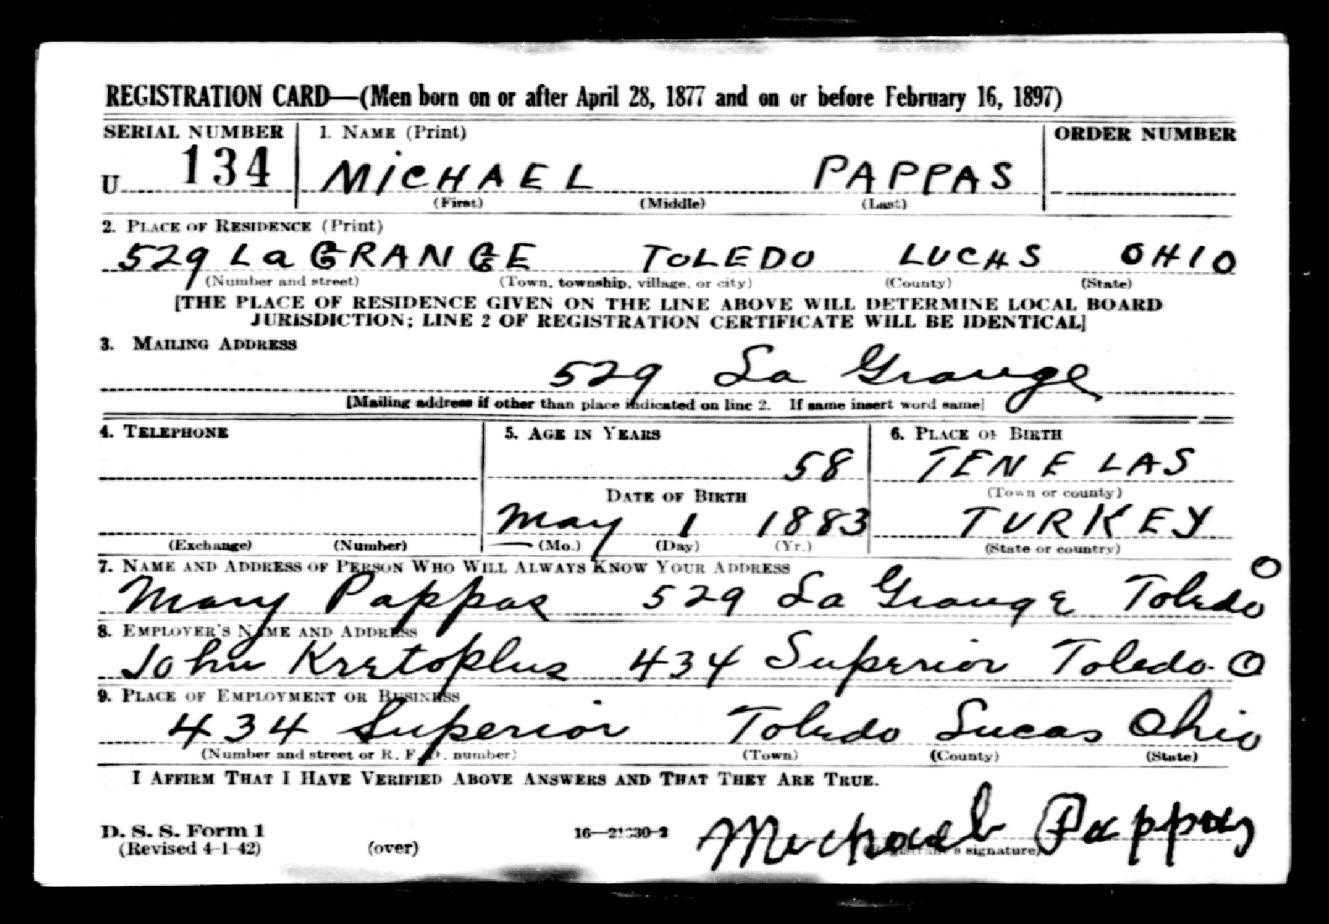 REGISTRATION CARD—(Men born on or after April 28, 1877 and on or before February 16, 1897)
SERIAL NUMBER 1. NAME (Print) ORDER NUMBER
U 134 MICHAEL PAPPAS
(First) (Middle) (Last)
2. PLACE OF RESIDENCE (Print)
529 LaGRANGE TOLEDO LUCAS OHIO
(Number and street) (Town, township, village, or city) (County) (State)
[THE PLACE OF RESIDENCE GIVEN ON THE LINE ABOVE WILL DETERMINE LOCAL BOARD
JURISDICTION; LINE 2 OF REGISTRATION CERTIFICATE WILL BE IDENTICAL]
3. MAILING ADDRESS
529 La Grange
[Mailing address if other than place indicated on line 2. If same insert word same]
4. TELEPHONE 5. AGE IN YEARS 6. PLACE OF BIRTH
58 TENELAS
DATE OF BIRTH (Town or county)
May 1 1883 TURKEY
(Exchange) (Number) (Mo.) (Day) (Yr.) (State or country)
7. NAME AND ADDRESS OF PERSON WHO WILL ALWAYS KNOW YOUR ADDRESS
Mary Pappas 529 La Grange Toledo O
8. EMPLOYER'S NAME AND ADDRESS
John Kretoplus 434 Superior Toledo. O
9. PLACE OF EMPLOYMENT OR BUSINESS
434 Superior Toledo Lucas Ohio
(Number and street or R. F. D. number) (Town) (County) (State)
I AFFIRM THAT I HAVE VERIFIED ABOVE ANSWERS AND THAT THEY ARE TRUE.
D. S. S. Form 1
(Revised 4-1-42) (over) Michael Pappas
signature)